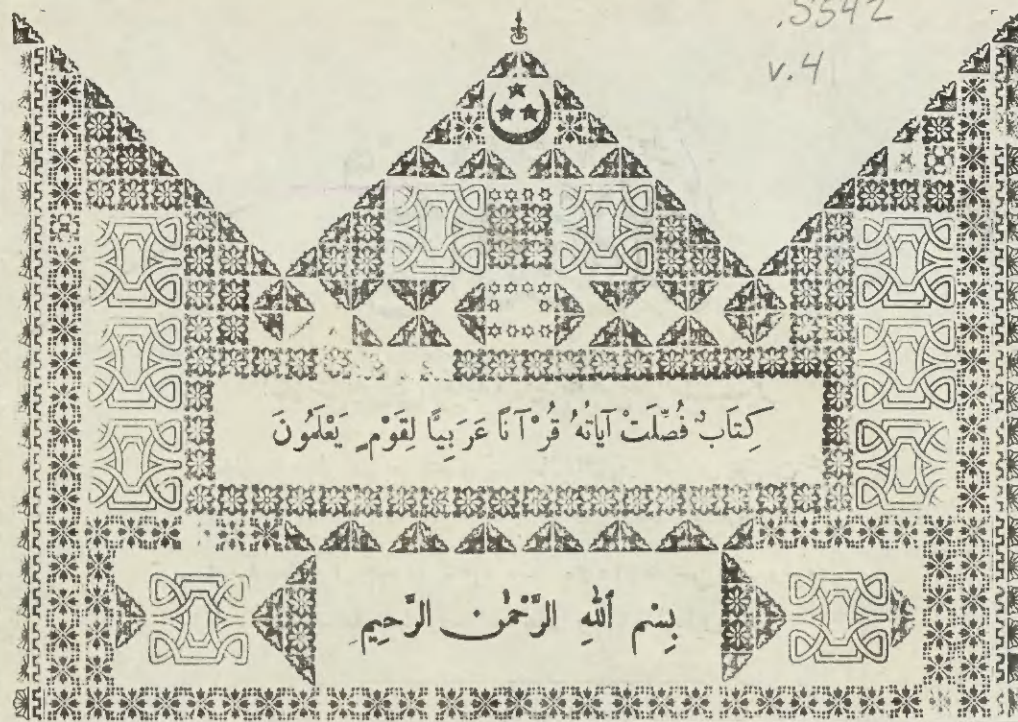 .5542
v.4
كِتَابٌ فُصِّلَتْ آيَاتُهُ قُرْآنًا عَرَبِيًّا لِقَوْمٍ يَعْلَمُونَ
بِسْمِ ٱللهِ الرَّحْمٰنِ الرَّحِيمِ